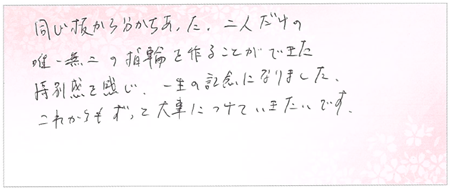 同じ板から分かちあった、二人だけの
唯一無二の指輪を作ることができた
特別感を感じ、一生の記念になりました。
これからもずっと大事につけていきたいです。